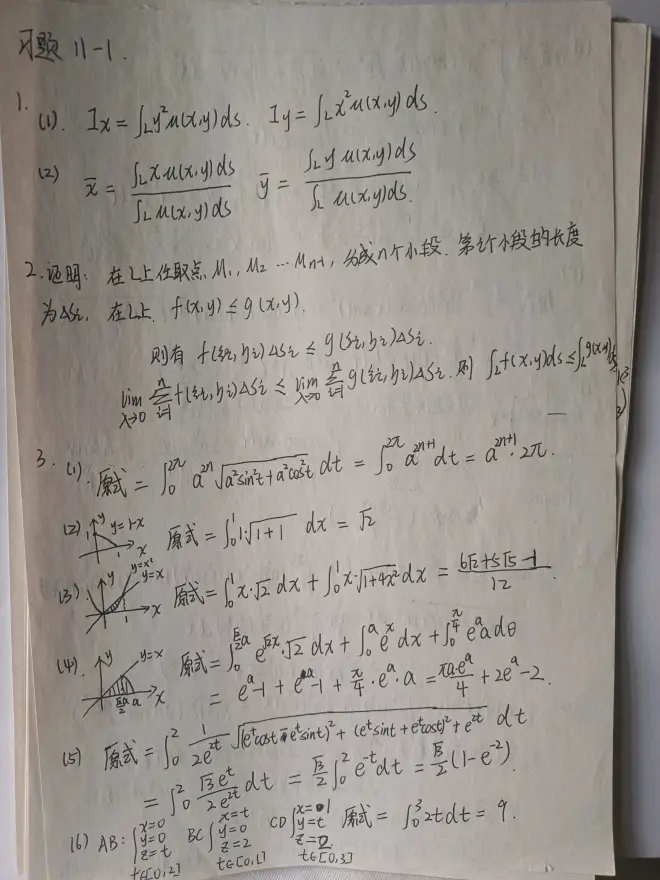 习题 11-1.
1.
(1). Ix = ∫L y²μ(x,y)ds. Iy = ∫L x²μ(x,y)ds.
(2) x̄ = ∫L xμ(x,y)ds / ∫L μ(x,y)ds ȳ = ∫L yμ(x,y)ds / ∫L μ(x,y)ds.
2. 证明: 在L上任取点 M₁, M₂ … Mn-1, 分成n个小段. 第i个小段的长度
为ΔSi, 在L上. f(x,y) ≤ g(x,y).
则有 f(ξi,ηi)ΔSi ≤ g(ξi,ηi)ΔSi.
lim λ→0 Σ i=1 n f(ξi,ηi)ΔSi ≤ lim λ→0 Σ i=1 n g(ξi,ηi)ΔSi. 则 ∫L f(x,y)ds ≤ ∫L g(x,y)ds
3. (1). 原式 = ∫₀^2π a^2n √(a²sin²t+a²cos²t) dt = ∫₀^2π a^(2n+1) dt = a^(2n+1)·2π.
(2) y y=1-x 1 1 x 原式 = ∫₀¹ 1·√(1+1) dx = √2
(3) y y=x² y=x 1 x 原式 = ∫₀¹ x·√2 dx + ∫₀¹ x·√(1+4x²) dx = (6√2+5√5-1)/12.
(4). y y=x √2/2 a a x 原式 = ∫₀^(√2/2 a) e^(√2x)·√2 dx + ∫₀^a e^x dx + ∫₀^(π/4) e^a a dθ
= e^a-1 + e^a-1 + π/4·e^a·a = πa·e^a/4 + 2e^a-2.
(5) 原式 = ∫₀² 1/(2e^2t) √((e^t cost-e^t sint)² + (e^t sint+e^t cost)²+e^2t) dt
= ∫₀² √3e^t/(2e^2t) dt = √3/2 ∫₀² e^-t dt = √3/2 (1-e^-2).
(6) AB: {x=0 y=0 z=t t∈[0,2] BC {x=t y=0 z=2 t∈[0,1] CD {x=1 y=t z=2 t∈[0,3] 原式 = ∫₀³ 2t dt = 9.